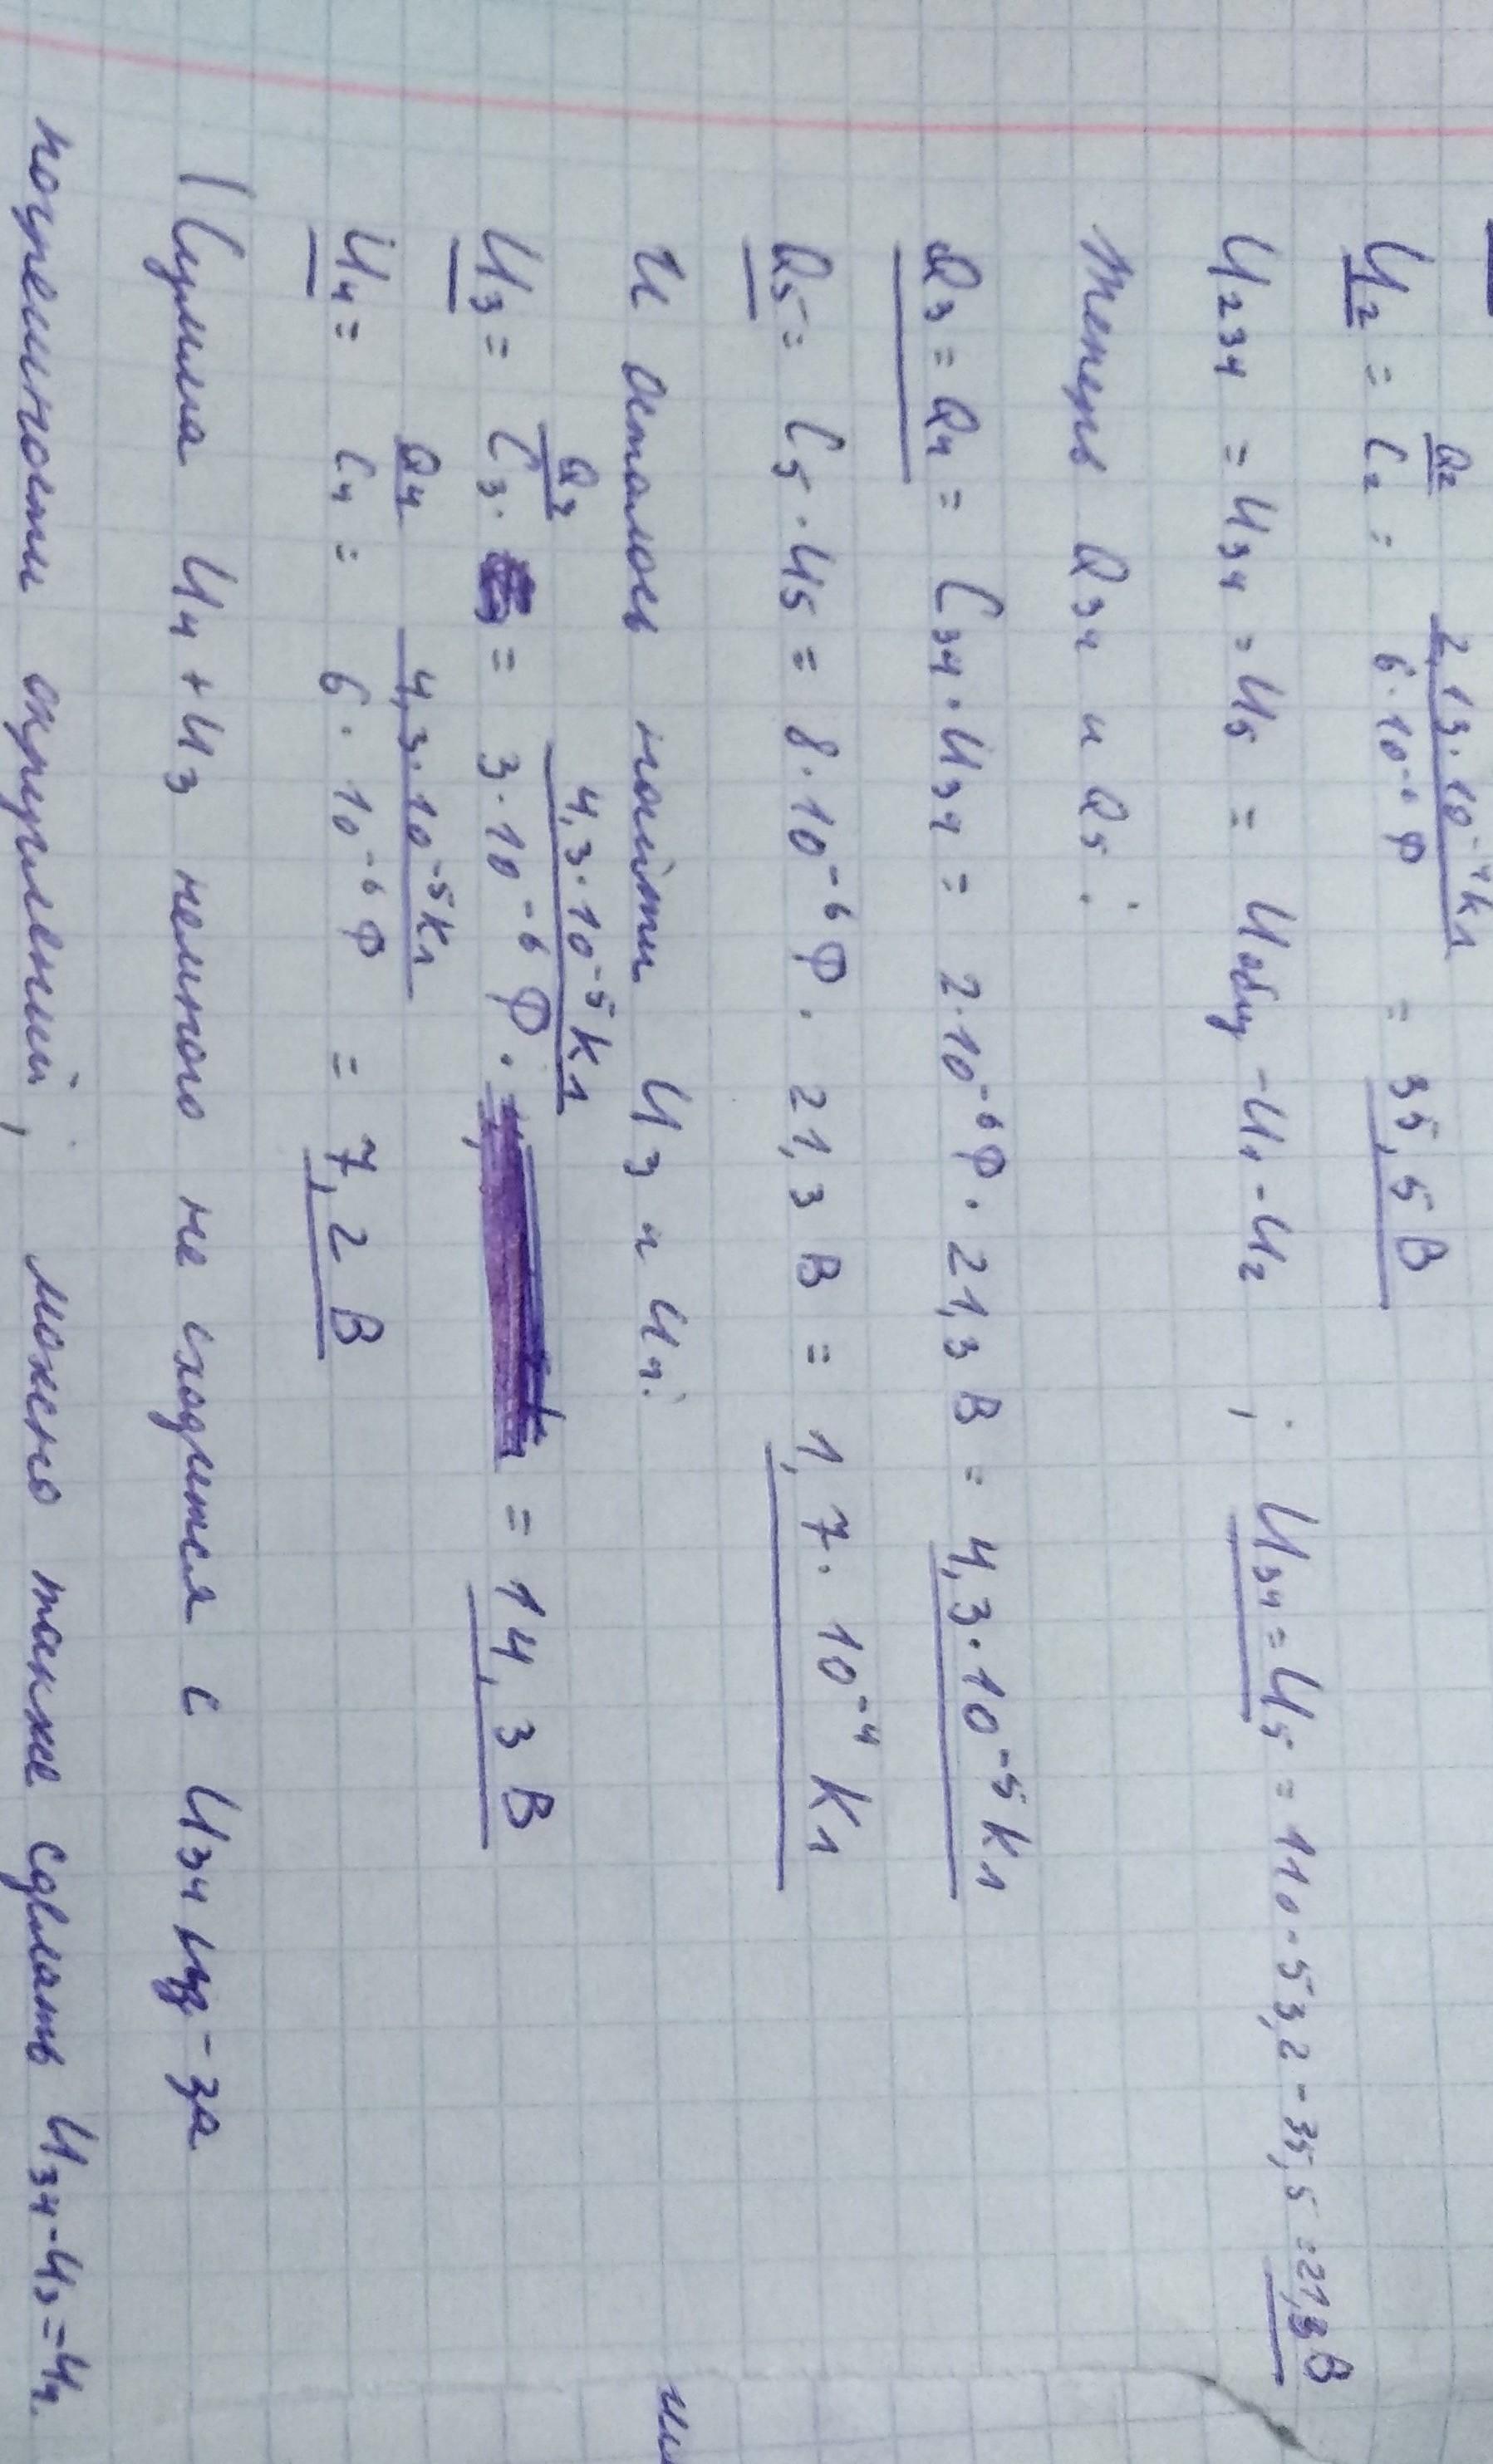 U₂ = Q₂/C₂ = 2,13·10⁻⁴Кл / 6·10⁻⁶Ф = 35,5 В
U₂₃₄ = U₃₄ = U₅ = Uобщ - U₁ - U₂ ; U₃₄ = U₅ = 110-53,2-35,5 = 21,3В
Теперь Q₃₄ и Q₅:
Q₃ = Q₄ = C₃₄·U₃₄ = 2·10⁻⁶Ф·21,3 В = 4,3·10⁻⁵Кл
Q₅ = C₅·U₅ = 8·10⁻⁶Ф·21,3 В = 1,7·10⁻⁴Кл
И осталось найти U₃ и U₄:
U₃ = Q₃/C₃· = 4,3·10⁻⁵Кл / 3·10⁻⁶Ф· = 14,3 В
U₄ = Q₄/C₄ = 4,3·10⁻⁵Кл / 6·10⁻⁶Ф = 7,2 В
(Сумма U₄+U₃ немного не сходится с U₃₄ из-за
погрешности округлений, можно также сделать U₃₄-U₃=U₄.